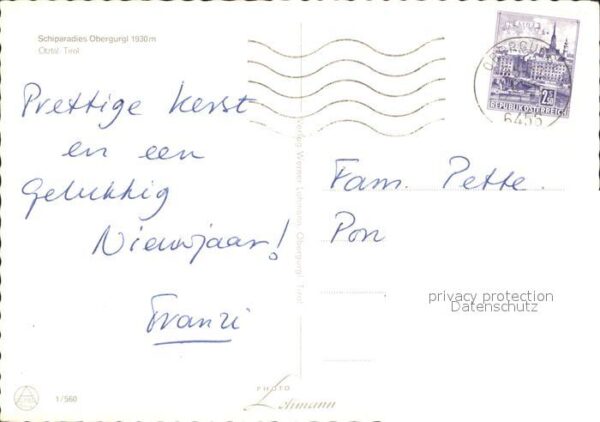 Schiparadies Obergurgl 1930m
Ötztal Tirol
Prettige kerst
en een
Gelukkig
Nieuwjaar!
Franzi
Verlag Werner Lohmann, Obergurgl, Tirol
REPUBLIK ÖSTERREICH
6456
Fam. Pette.
Pon
privacy protection
Datenschutz
1/560
PHOTO
Lohmann